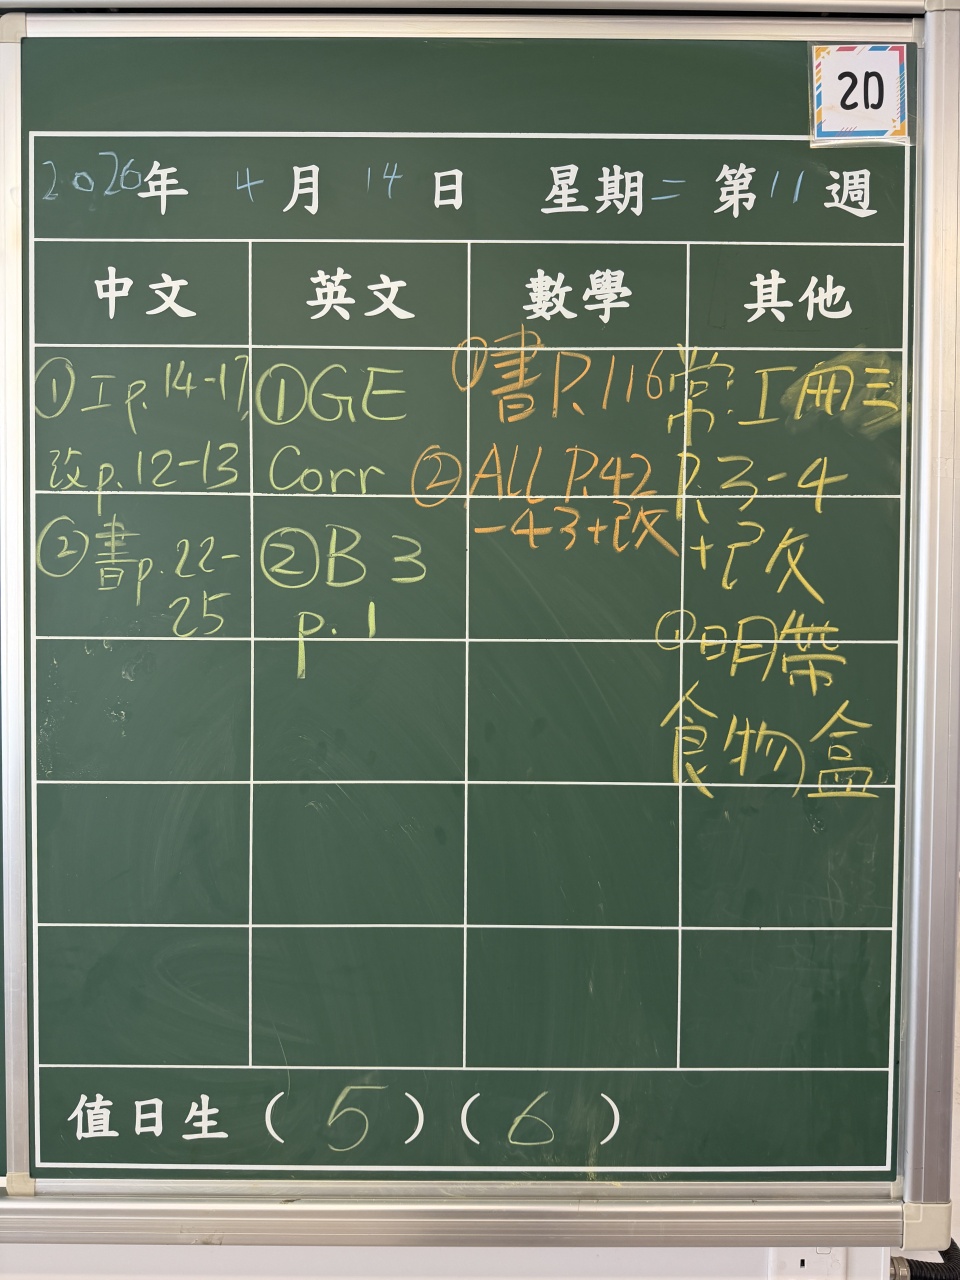 2D
2026年 4月 14日 星期二 第11週
中文 英文 數學 其他
①工p.14-17
改p.12-13
②書p.22-
25
①GE
Corr
②B3
p.1
①書P.116
②ALL P.42
-43+改
常工冊三
P.3-4
+改
①明帶
食物盒
值日生(5)(6)